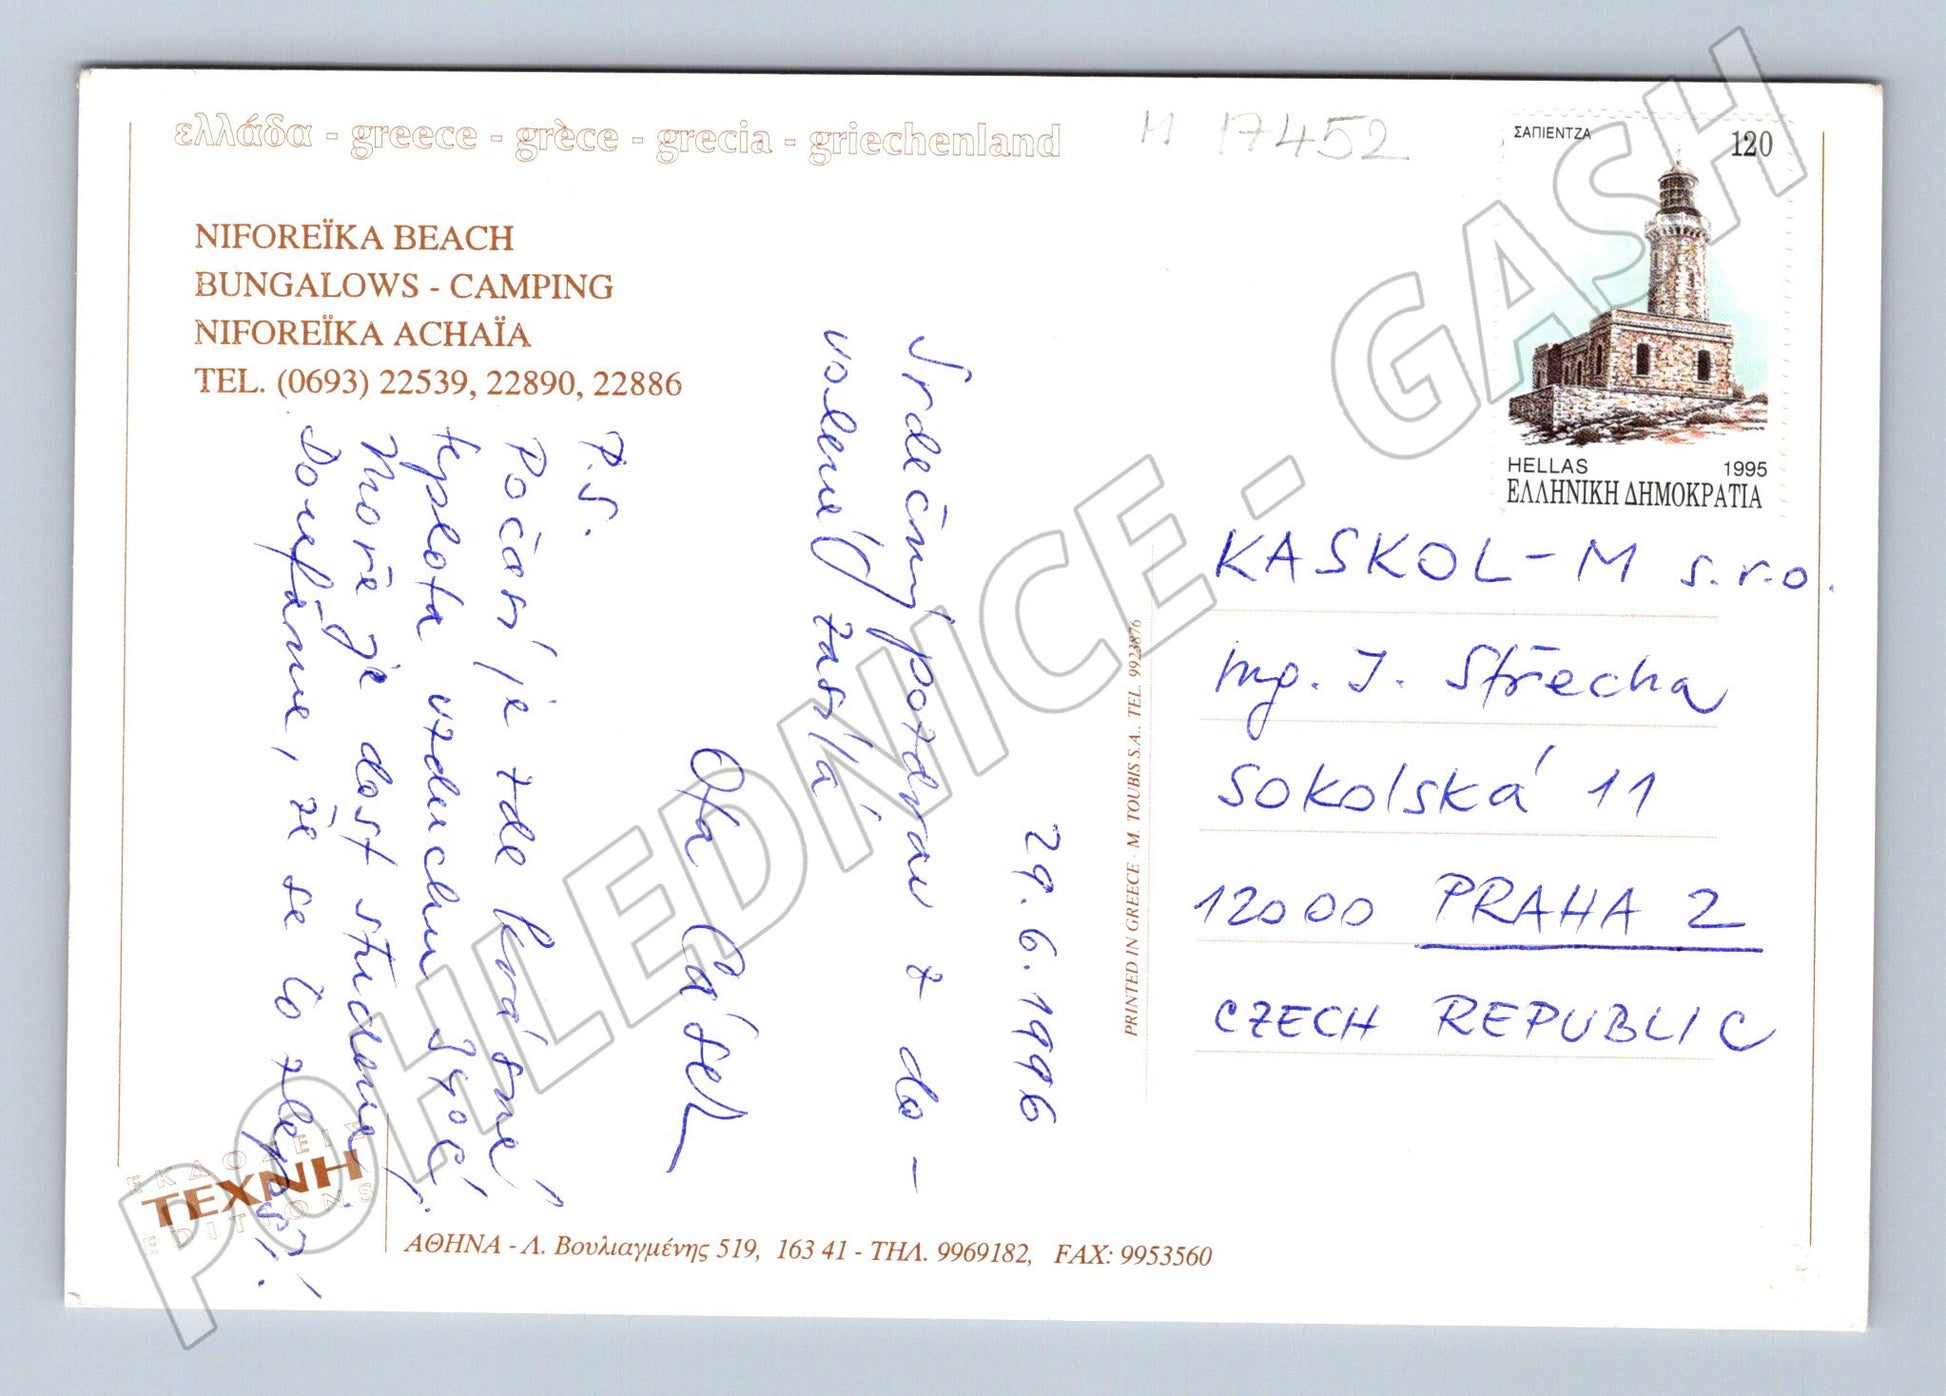 ελλάδα - greece - grèce - grecia - griechenland
M 17452
NIFOREÏKA BEACH
BUNGALOWS - CAMPING
NIFOREÏKA ACHAÏA
TEL. (0693) 22539, 22890, 22886
29.6.1996
Srdečný pozdrav z do-
volené zasílá
Ota Cásek
P.S.
Počasí je zde krásné
teplota vzduchu 34°C
Moře je dost studené.
Doufáme, že se to zlepší!
ΣΑΠΙΕΝΤΖΑ
120
HELLAS 1995
ΕΛΛΗΝΙΚΗ ΔΗΜΟΚΡΑΤΙΑ
KASKOL-M s.r.o.
ing. J. Střecha
Sokolská 11
12000 PRAHA 2
CZECH REPUBLIC
PRINTED IN GREECE - M. TOUBIS S.A., TEL. 9923876
ΕΚΔΟΣΕΙΣ
ΤΕΧΝΗ
EDITIONS
ΑΘΗΝΑ - Λ. Βουλιαγμένης 519, 163 41 - ΤΗΛ. 9969182, FAX: 9953560
POHLEDNICE - GASH